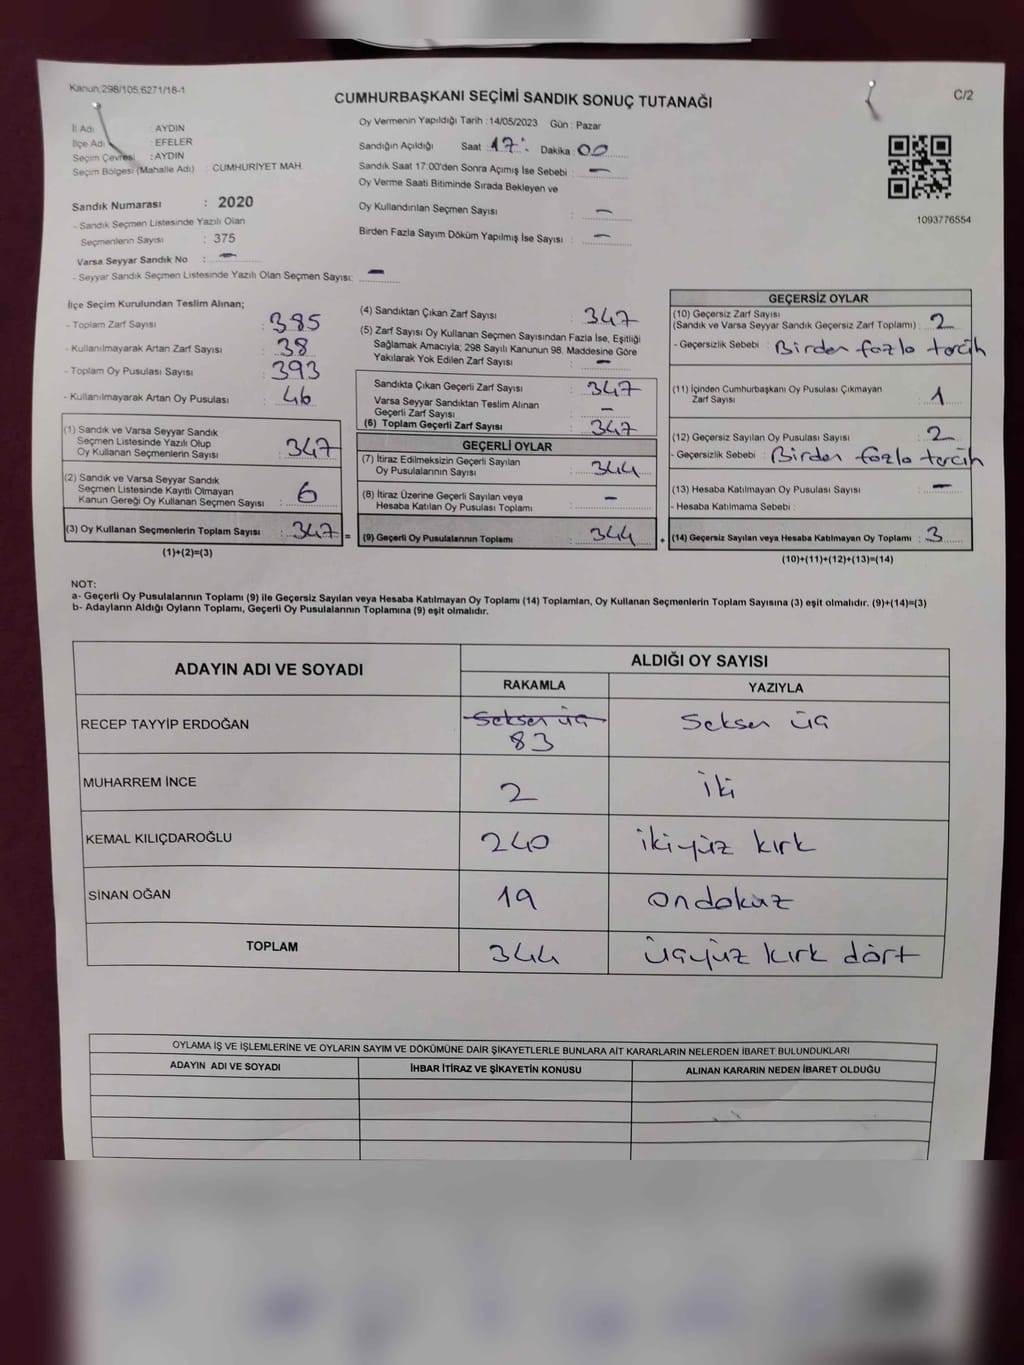 Kanun:298/105,6271/18-1
CUMHURBAŞKANI SEÇİMİ SANDIK SONUÇ TUTANAĞI
C/2
İl Adı : AYDIN
İlçe Adı : EFELER
Seçim Çevresi : AYDIN
Seçim Bölgesi (Mahalle Adı) : CUMHURİYET MAH.
Sandık Numarası : 2020
- Sandık Seçmen Listesinde Yazılı Olan
Seçmenlerin Sayısı : 375
Varsa Seyyar Sandık No : —
- Seyyar Sandık Seçmen Listesinde Yazılı Olan Seçmen Sayısı: —
Oy Vermenin Yapıldığı Tarih : 14/05/2023 Gün : Pazar
Sandığın Açıldığı Saat 17: Dakika 00
Sandık Saat 17:00'den Sonra Açımış İse Sebebi : —
Oy Verme Saati Bitiminde Sırada Bekleyen ve
Oy Kullandırılan Seçmen Sayısı : —
Birden Fazla Sayım Döküm Yapılmış İse Sayısı : —
1093776554
İlçe Seçim Kurulundan Teslim Alınan;
- Toplam Zarf Sayısı : 385
- Kullanılmayarak Artan Zarf Sayısı : 38
- Toplam Oy Pusulası Sayısı : 393
- Kullanılmayarak Artan Oy Pusulası : 46
(1) Sandık ve Varsa Seyyar Sandık
Seçmen Listesinde Yazılı Olup
Oy Kullanan Seçmenlerin Sayısı : 347
(2) Sandık ve Varsa Seyyar Sandık
Seçmen Listesinde Kayıtlı Olmayan
Kanun Gereği Oy Kullanan Seçmen Sayısı : 6
(3) Oy Kullanan Seçmenlerin Toplam Sayısı : 347 =
(1)+(2)=(3)
(4) Sandıktan Çıkan Zarf Sayısı : 347
(5) Zarf Sayısı Oy Kullanan Seçmen Sayısından Fazla İse, Eşitliği
Sağlamak Amacıyla; 298 Sayılı Kanunun 98. Maddesine Göre
Yakılarak Yok Edilen Zarf Sayısı : —
Sandıkta Çıkan Geçerli Zarf Sayısı : 347
Varsa Seyyar Sandıktan Teslim Alınan
Geçerli Zarf Sayısı : —
(6) Toplam Geçerli Zarf Sayısı : 347
GEÇERLİ OYLAR
(7) İtiraz Edilmeksizin Geçerli Sayılan
Oy Pusulalarının Sayısı : 344
(8) İtiraz Üzerine Geçerli Sayılan veya
Hesaba Katılan Oy Pusulası Toplamı : —
(9) Geçerli Oy Pusulalarının Toplamı : 344 +
GEÇERSİZ OYLAR
(10) Geçersiz Zarf Sayısı
(Sandık ve Varsa Seyyar Sandık Geçersiz Zarf Toplamı) : 2
- Geçersizlik Sebebi : Birden fazla tercih
(11) İçinden Cumhurbaşkanı Oy Pusulası Çıkmayan
Zarf Sayısı : 1
(12) Geçersiz Sayılan Oy Pusulası Sayısı : 2
- Geçersizlik Sebebi : Birden fazla tercih
(13) Hesaba Katılmayan Oy Pusulası Sayısı : —
- Hesaba Katılmama Sebebi :
(14) Geçersiz Sayılan veya Hesaba Katılmayan Oy Toplamı : 3
(10)+(11)+(12)+(13)=(14)
NOT:
a- Geçerli Oy Pusulalarının Toplamı (9) ile Geçersiz Sayılan veya Hesaba Katılmayan Oy Toplamı (14) Toplamları, Oy Kullanan Seçmenlerin Toplam Sayısına (3) eşit olmalıdır. (9)+(14)=(3)
b- Adayların Aldığı Oyların Toplamı, Geçerli Oy Pusulalarının Toplamına (9) eşit olmalıdır.
ADAYIN ADI VE SOYADI
ALDIĞI OY SAYISI
RAKAMLA YAZIYLA
RECEP TAYYİP ERDOĞAN Seksen üç 83 Seksen üç
MUHARREM İNCE 2 iki
KEMAL KILIÇDAROĞLU 240 ikiyüz kırk
SİNAN OĞAN 19 ondokuz
TOPLAM 344 üçyüz kırk dört
OYLAMA İŞ VE İŞLEMLERİNE VE OYLARIN SAYIM VE DÖKÜMÜNE DAİR ŞİKAYETLERLE BUNLARA AİT KARARLARIN NELERDEN İBARET BULUNDUKLARI
ADAYIN ADI VE SOYADI İHBAR İTİRAZ VE ŞİKAYETİN KONUSU ALINAN KARARIN NEDEN İBARET OLDUĞU